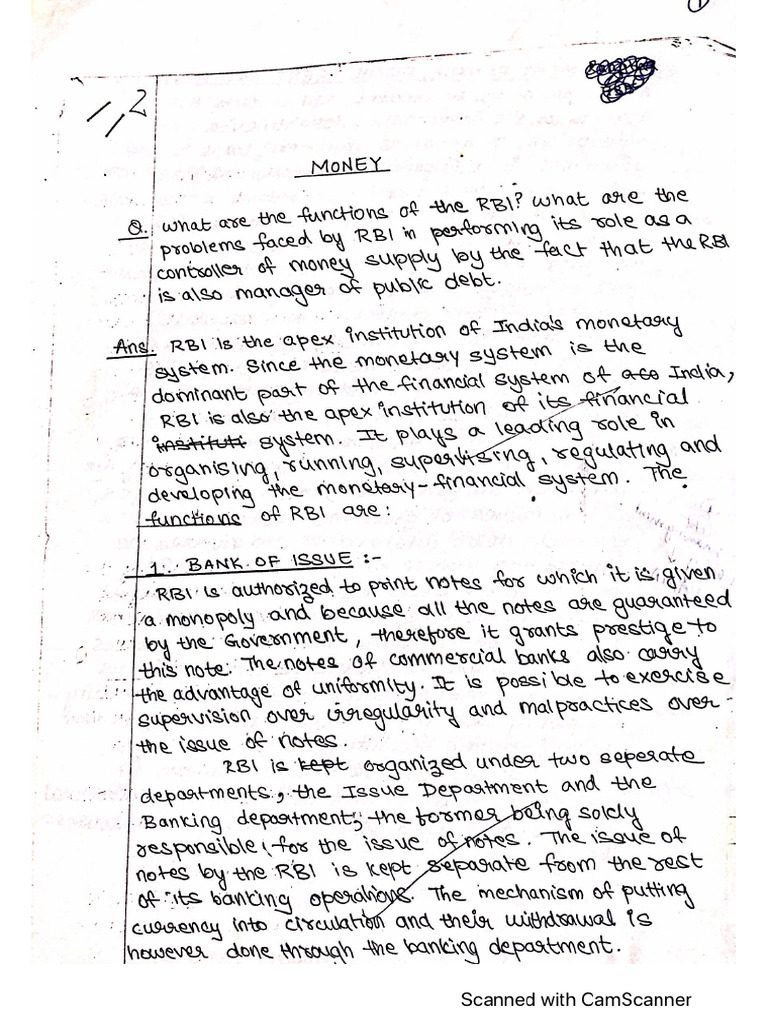 1
1,2
MONEY
Q. What are the functions of the RBI? What are the
problems faced by RBI in performing its role as a
controller of money supply by the fact that the RBI
is also manager of public debt.
Ans. RBI is the apex institution of India's monetary
system. Since the monetary system is the
dominant part of the financial system of India,
RBI is also the apex institution of its financial
instituti system. It plays a leading role in
organising, running, supervising, regulating and
developing the monetary-financial system. The
functions of RBI are:
1. BANK OF ISSUE :-
RBI is authorized to print notes for which it is given
a monopoly and because all the notes are guaranteed
by the Government, therefore it grants prestige to
this note. The notes of commercial banks also carry
the advantage of uniformity. It is possible to exercise
supervision over irregularity and malpractices over
the issue of notes.
RBI is kept organized under two seperate
departments, the Issue Department and the
Banking department; the former being solely
responsible for the issue of notes. The issue of
notes by the RBI is kept separate from the rest
of its banking operations. The mechanism of putting
currency into circulation and their withdrawal is
however done through the banking department.
Scanned with CamScanner